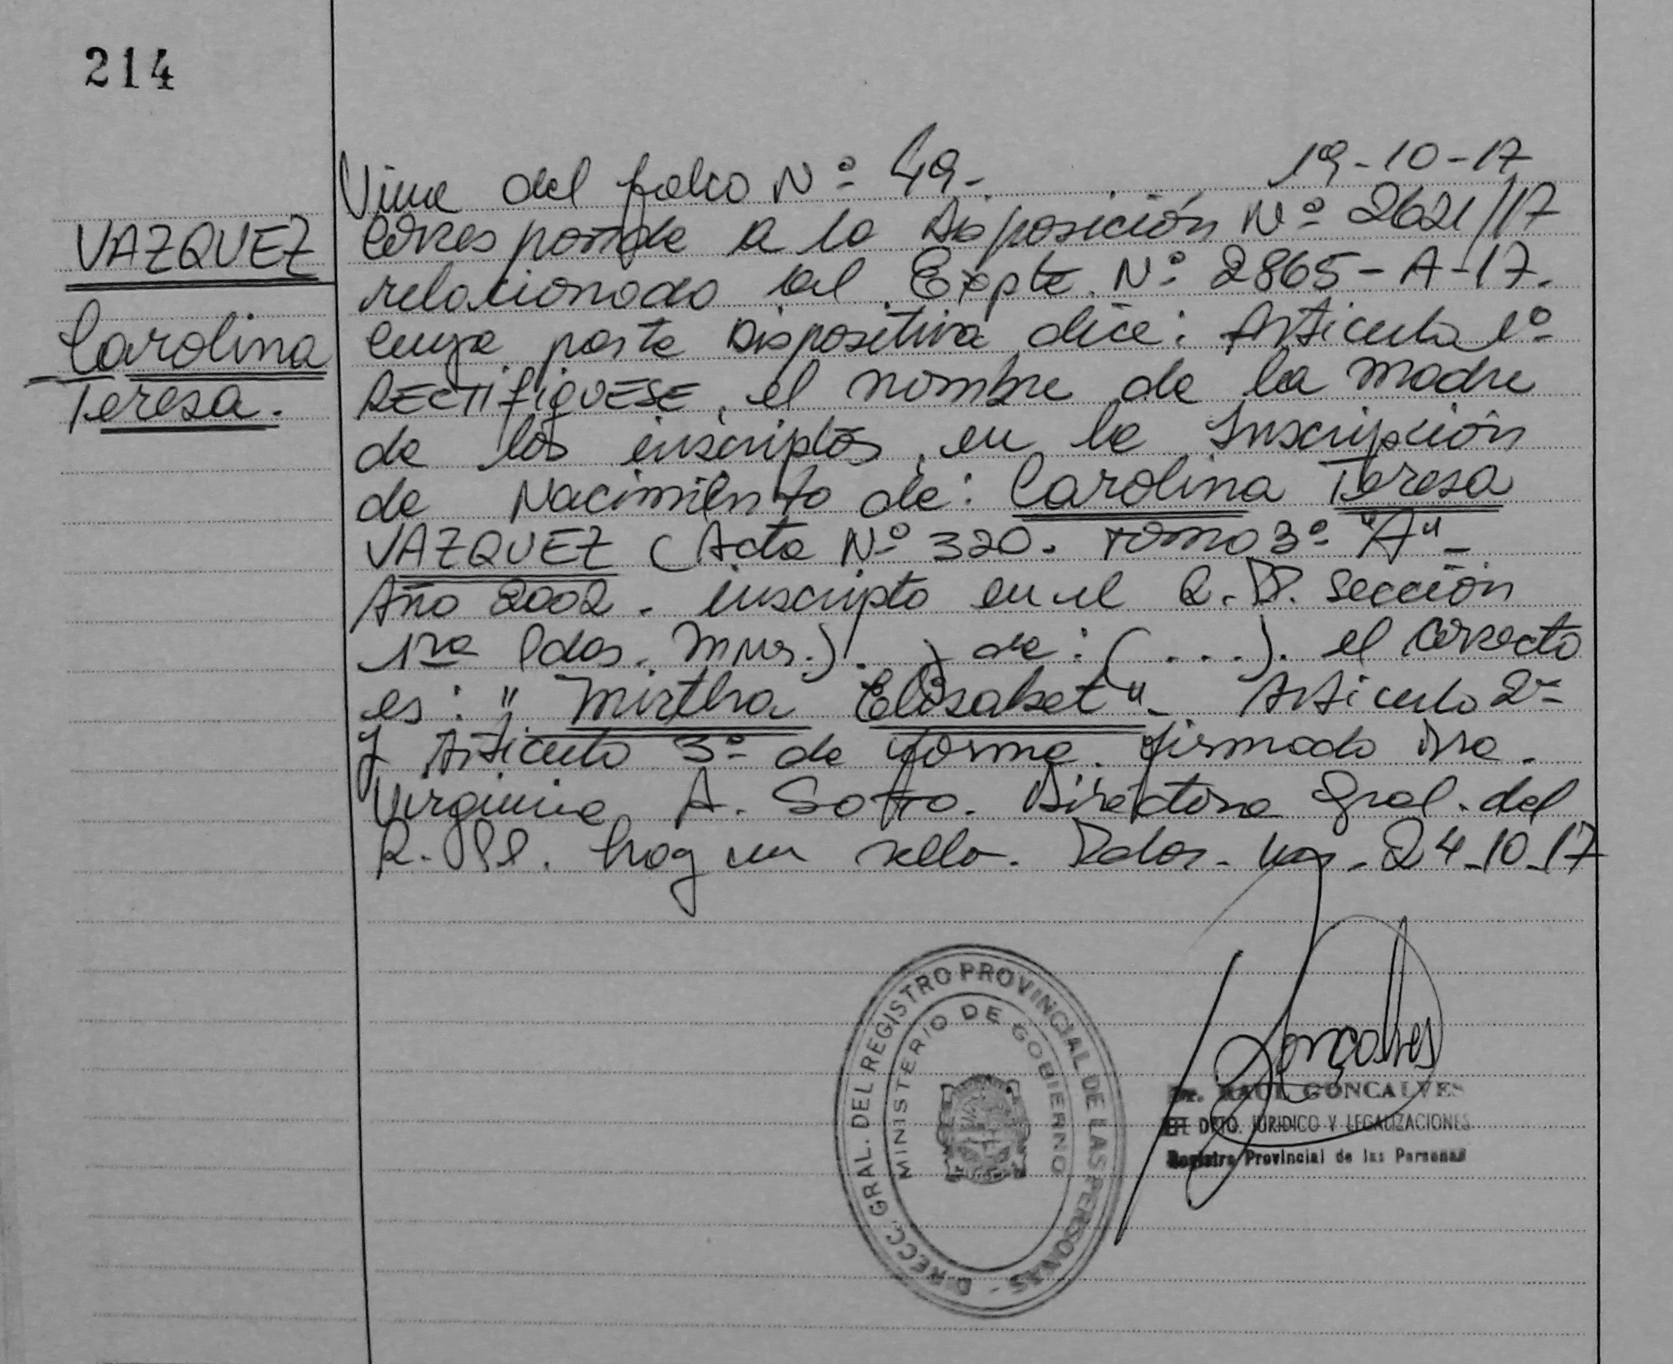 214
VAZQUEZ
Carolina
Teresa.
Viene del folio Nº 49-
19-10-17
Corresponde a la Disposición Nº 2621/17
relacionado al Expte. Nº 2865-A-17.
cuya parte Dispositiva dice: Articulo 1º
RECTIFIQUESE, el nombre de la madre
de los inscriptos, en la Inscripción
de Nacimiento de: Carolina Teresa
VAZQUEZ (Acta Nº 320. Tomo 3º "A"-
Año 2002. inscripto en el R.P. Sección
1ra Pdas. Mnes.). ) de: (....). el correcto
es: "Mirtha Elisabet"- Articulo 2º
y Articulo 3º de forma. firmado Dra.
Virginia A. Sotto. Directora Gral. del
R. PP. hay un sello. Pdas. Mnes. 24-10-17
DIRECC. GRAL. DEL REGISTRO PROVINCIAL DE LAS PERSONAS -
MINISTERIO DE GOBIERNO
Gonçalves
Dr. RAUL GONCALVES
DPTO. JURIDICO Y LEGALIZACIONES
Registro Provincial de las Personas